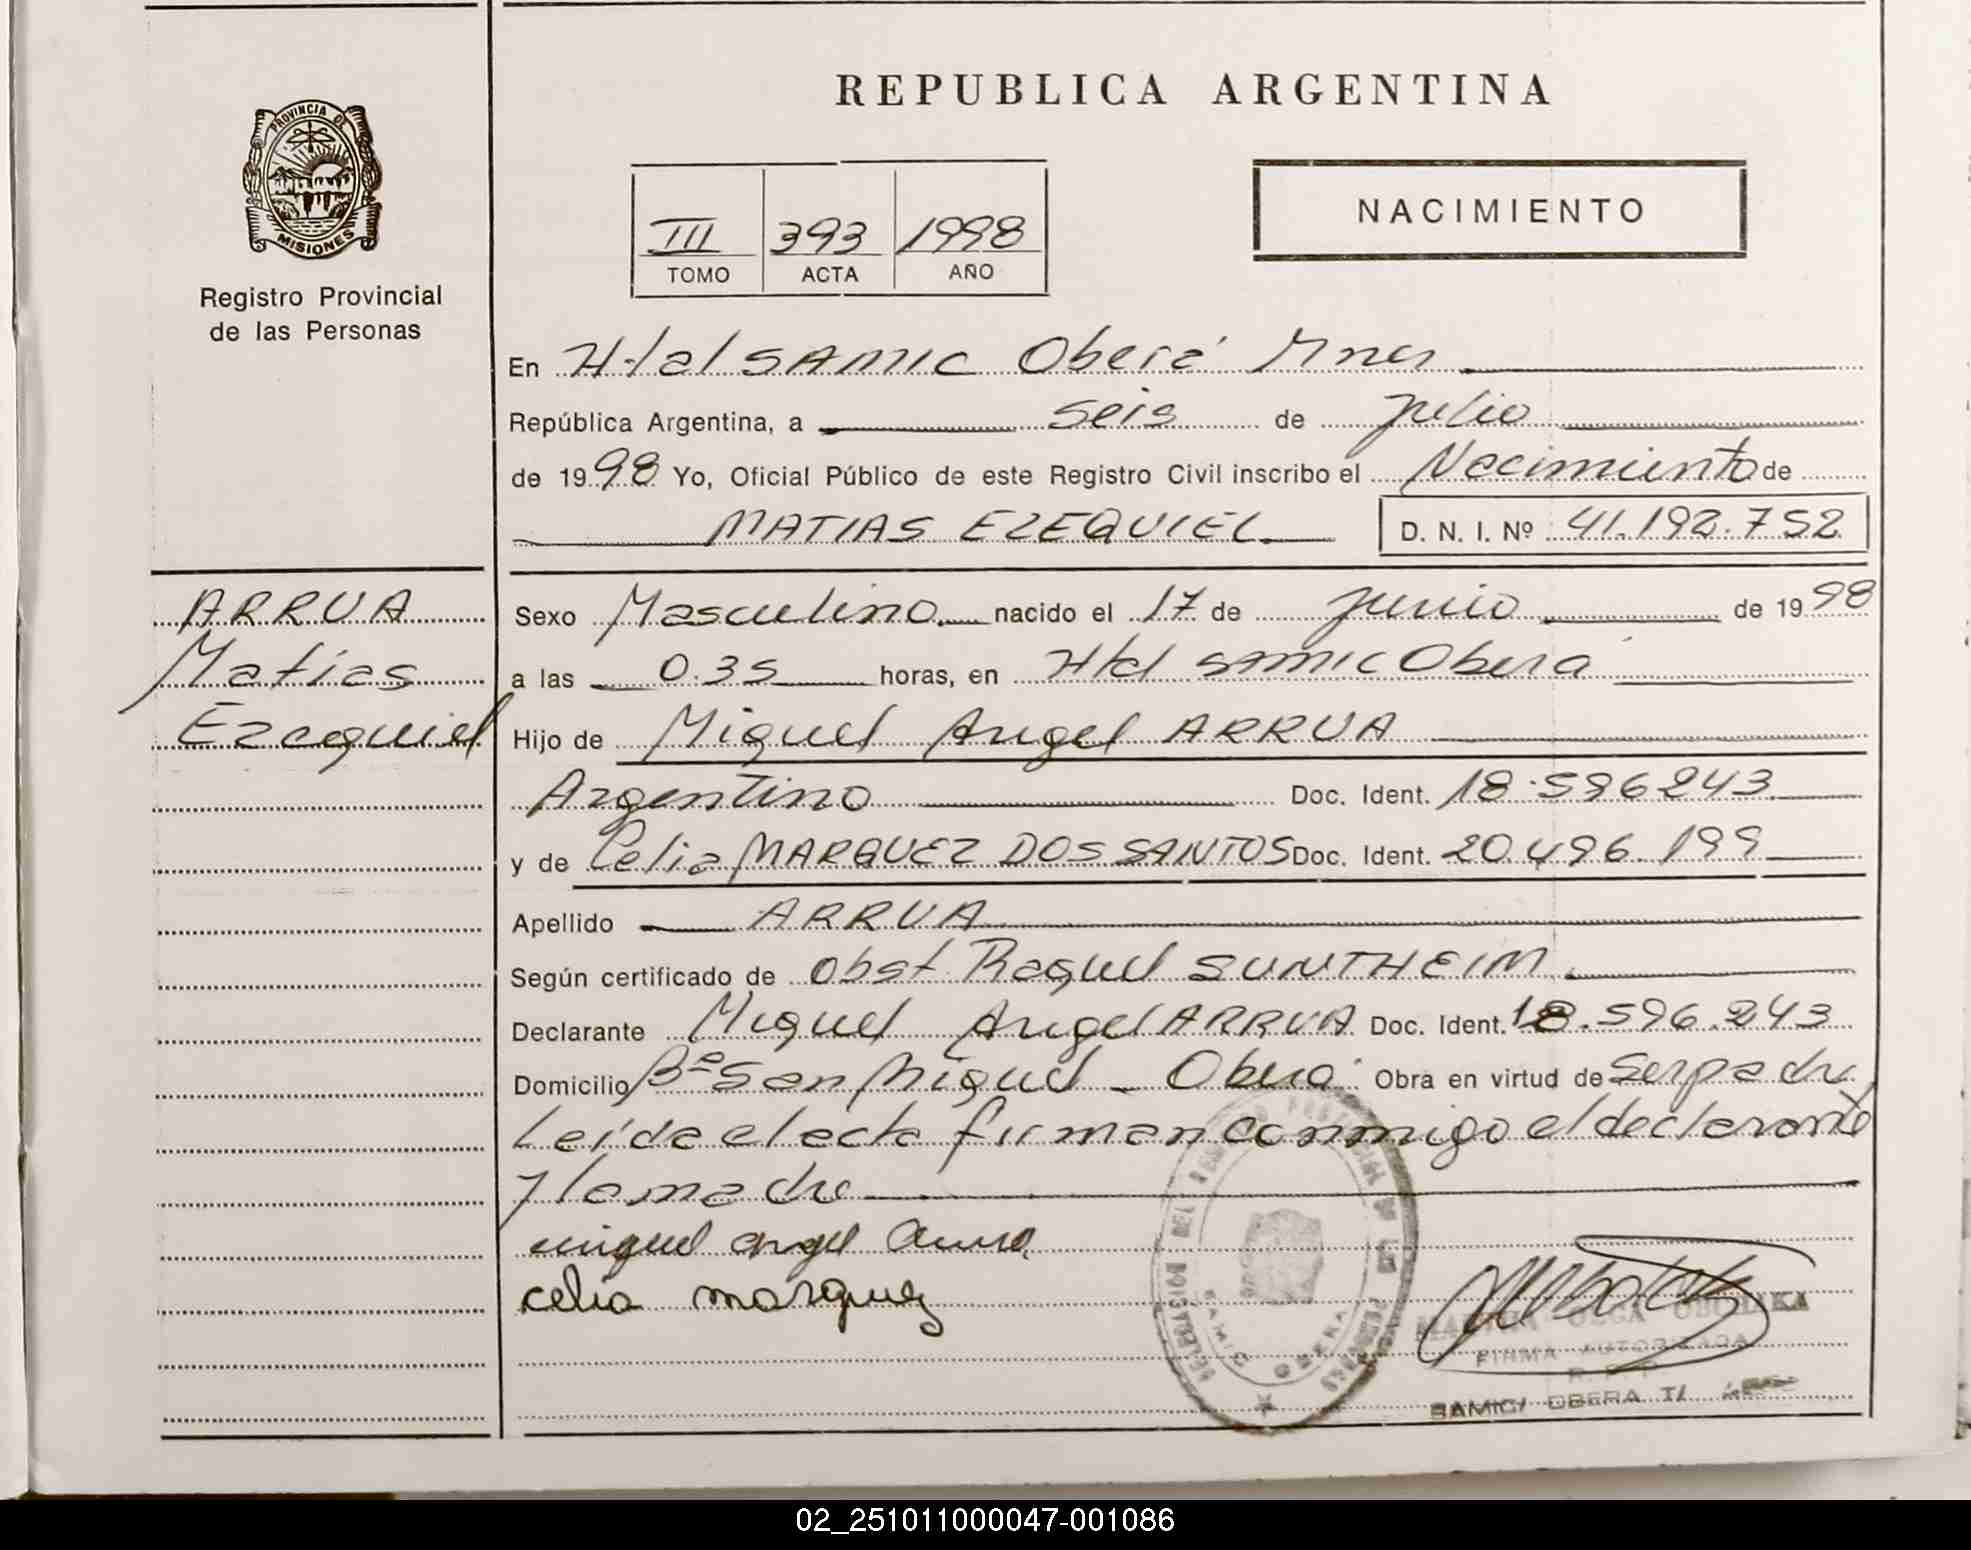 REPUBLICA ARGENTINA
PROVINCIA DE
MISIONES
Registro Provincial
de las Personas
III 393 1998
TOMO ACTA AÑO
NACIMIENTO
En H-tal SAMIC Oberá Mnes
República Argentina, a seis de Julio
de 1998 Yo, Oficial Público de este Registro Civil inscribo el Nacimiento de
MATIAS EZEQUIEL D. N. I. Nº 41.192.752
ARRUA
Matias
Ezequiel
Sexo Masculino nacido el 17 de Junio de 1998
a las 0.35 horas, en Htal SAMIC Oberá
Hijo de Miguel Angel ARRUA
Argentino Doc. Ident. 18.596243
y de Celia MARQUEZ DOS SANTOS Doc. Ident. 20.496.199
Apellido ARRUA
Según certificado de Obst Raquel SUNTHEIM
Declarante Miguel Angel ARRUA Doc. Ident. 18.596.243
Domicilio Bº San Miguel - Oberá Obra en virtud de Ser padre
Leída el acta firman conmigo el declarante
y la madre
miguel angel Arrua
celia marquez
DELEGACION DEL REGISTRO PROVINCIAL DE LAS PERSONAS
SAMIC OBERA
OLGA
FIRMA AUTORIZADA
R. P. P.
SAMIC/ OBERA T/
02_251011000047-001086